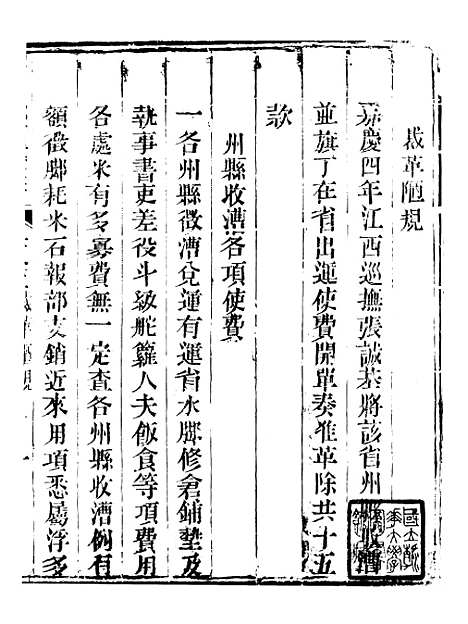 裁革陋規
嘉慶四年江西巡撫張誠基將該省州縣收漕
並旗丁在省出運使費開單奏准革除共十五
款
州縣收漕各項使費
一各州縣徵漕兌運有運省水腳修倉鋪墊及
執事書吏差役斗級舵籮人夫飯食等項費用
各處米有多寡費無一定查各州縣收漕例有
額徵腳耗米石報部支銷近來用項悉屬浮多